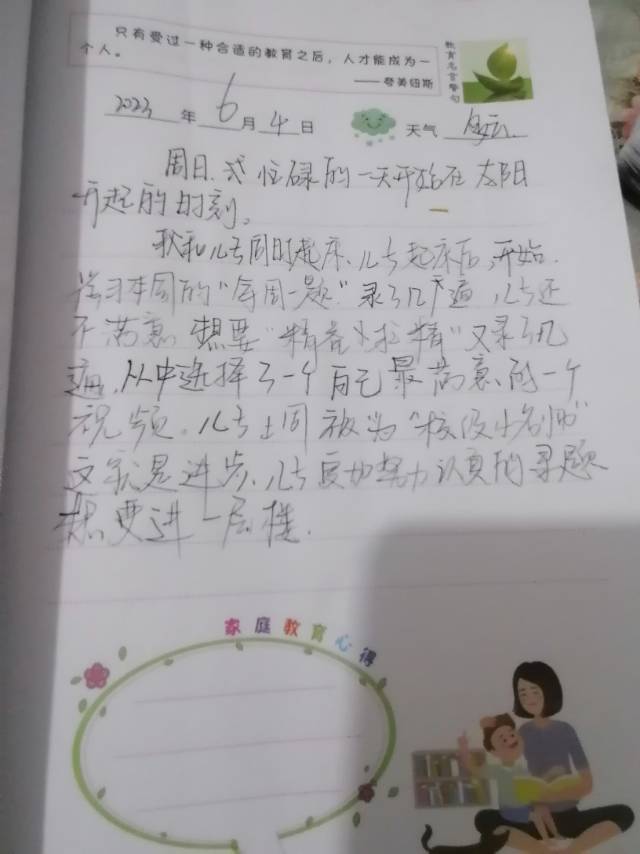 只有受过一种合适的教育之后，人才能成为一
个人。
——夸美纽斯
教育名言警句
2023 年 6 月 4 日 天气 多云
周日，忙碌的一天开始在太阳
升起的时刻。
我和儿子同时起床、儿子起床后，开始
学习本周的“每周一题”录了几遍，儿子还
不满意，想要“精益求精”又录了几
遍，从中选择了一个自己最满意的一个
视频。儿子上周被为“校级小名师”
这就是进步、儿子更加努力认真的录题
想要进一层楼.
家庭教育心得